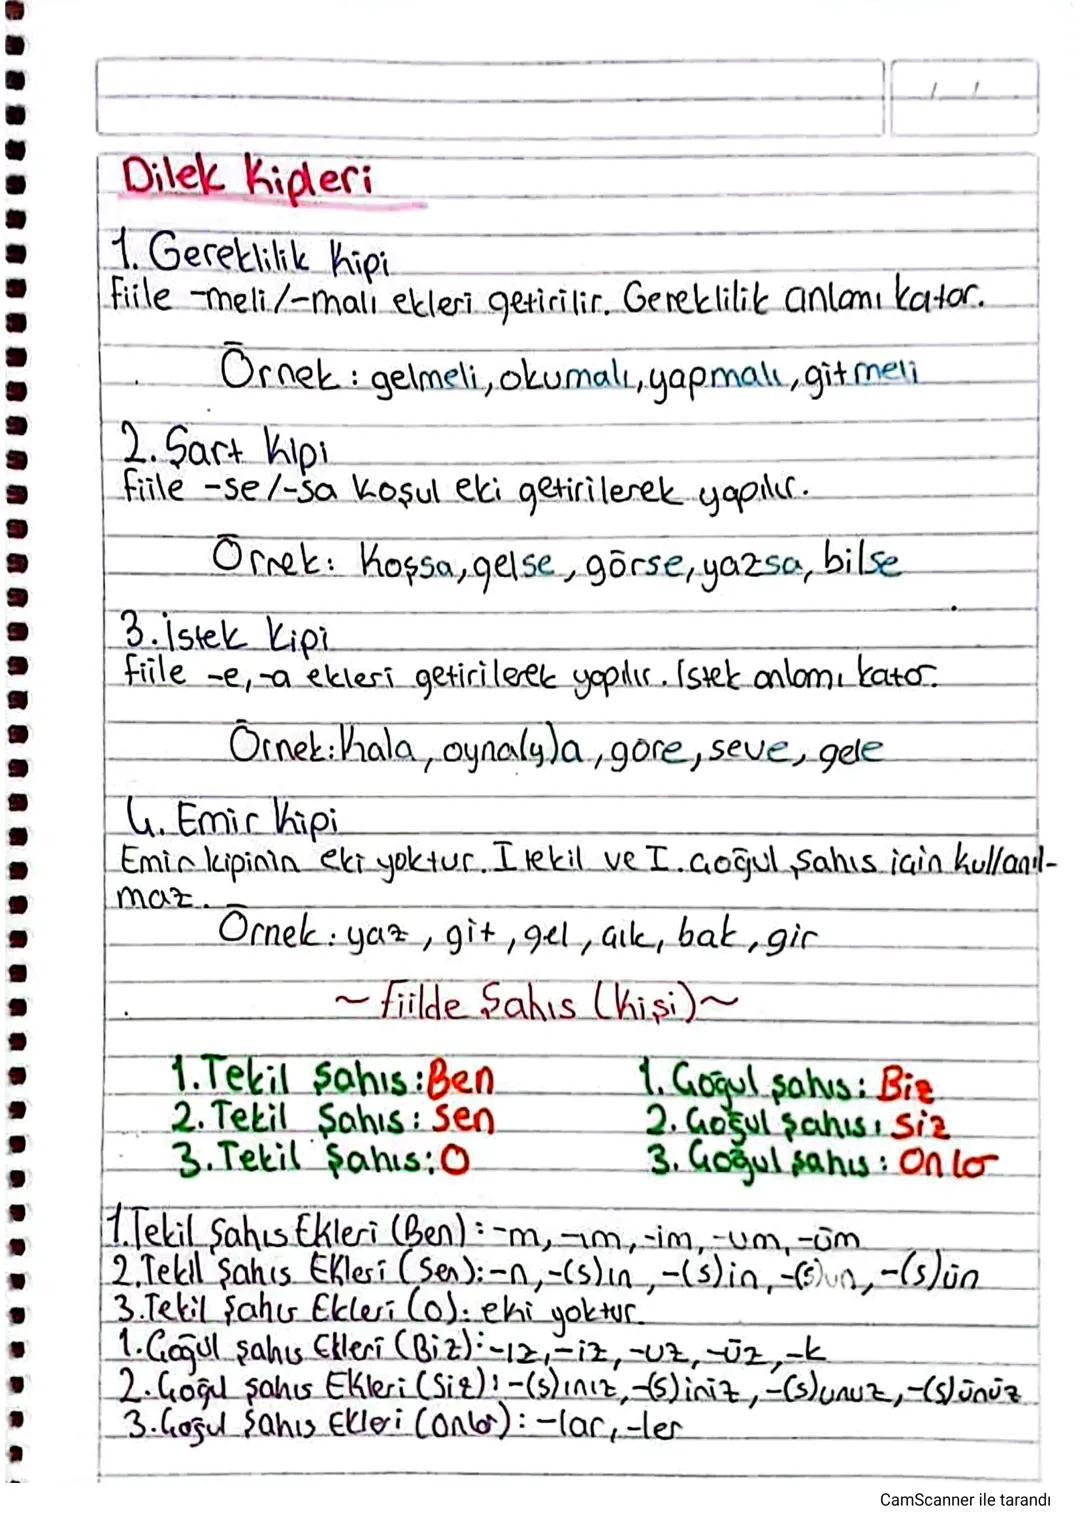 / /
Dilek Kipleri
1. Gereklilik Kipi
Fiile -meli/-malı ekleri getirilir. Gereklilik anlamı katar.
Örnek: gelmeli, okumalı, yapmalı, gitmeli
2. Şart Kipi
Fiile -se/-sa koşul eki getirilerek yapılır.
Örnek: Koşsa, gelse, görse, yazsa, bilse
3. İstek Kipi
Fiile -e, -a ekleri getirilerek yapılır. İstek anlamı katar.
Örnek: Kala, oyna(y)a, göre, seve, gele
4. Emir Kipi
Emir kipinin eki yoktur. I tekil ve I. çoğul şahıs için kullanıl-
maz.
Örnek: yaz, git, gel, çık, bak, gir
~ Fiilde Şahıs (Kişi) ~
1. Tekil Şahıs: Ben 1. Çoğul şahıs: Biz
2. Tekil Şahıs: Sen 2. Çoğul şahıs: Siz
3. Tekil Şahıs: O 3. Çoğul şahıs: Onlar
1. Tekil Şahıs Ekleri (Ben): -m, -ım, -im, -um, -üm
2. Tekil Şahıs Ekleri (Sen): -n, -(s)ın, -(s)in, -(s)un, -(s)ün
3. Tekil Şahıs Ekleri (O): eki yoktur.
1. Çoğul şahıs Ekleri (Biz): -ız, -iz, -uz, -üz, -k
2. Çoğul şahıs Ekleri (Siz): -(s)ınız, -(s)iniz, -(s)unuz, -(s)ünüz
3. Çoğul Şahıs Ekleri (Onlar): -lar, -ler
CamScanner ile tarandı